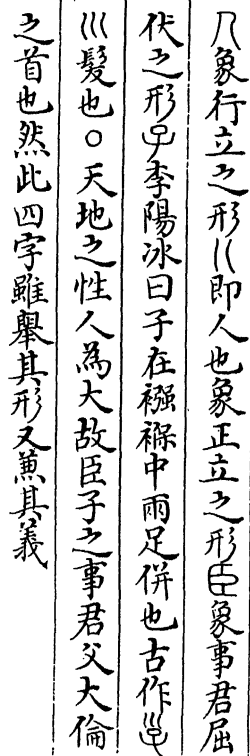 𠆢象行立之形〢即人也象正立之形臣象事君屈
伏之形子李陽冰曰子在襁褓中兩足併也古作㜽
巛髮也○天地之性人為大故臣子之事君父大倫
之首也然此四字雖舉其形又兼其義